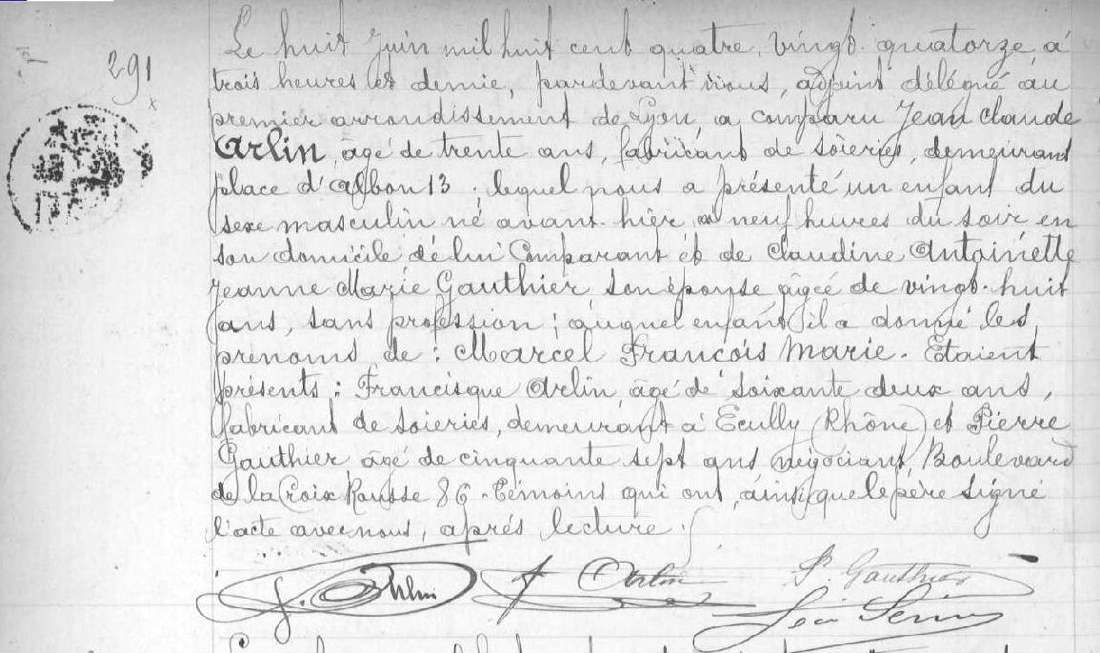 291
Le huit Juin mil huit cent quatre, vingt. quatorze à
trois heures et demie, pardevant nous, adjoint délégué au
premier arrondissement de Lyon, a comparu Jean Claude
Arlin, âgé de trente ans, fabricant de soieries, demeurant
place d'Albon 13. lequel nous a présenté un enfant du
sexe masculin né avant-hier à neuf heures du soir en
son domicile de lui Comparant et de Claudine Antoinette
Jeanne Marie Gauthier, son épouse, âgée de vingt-huit
ans, sans profession; auquel enfant il a donné les
prénoms de: Marcel François Marie. Etaient
présents: Francisque Arlin, âgé de soixante deux ans,
fabricant de soieries, demeurant à Ecully (Rhône) et Pierre
Gauthier âgé de cinquante sept ans négociant, Boulevard
de la Croix Rousse 86. Témoins qui ont, ainsi que le père signé
l'acte avec nous, après lecture.
J. Arlin F Arlin P. Gauthier